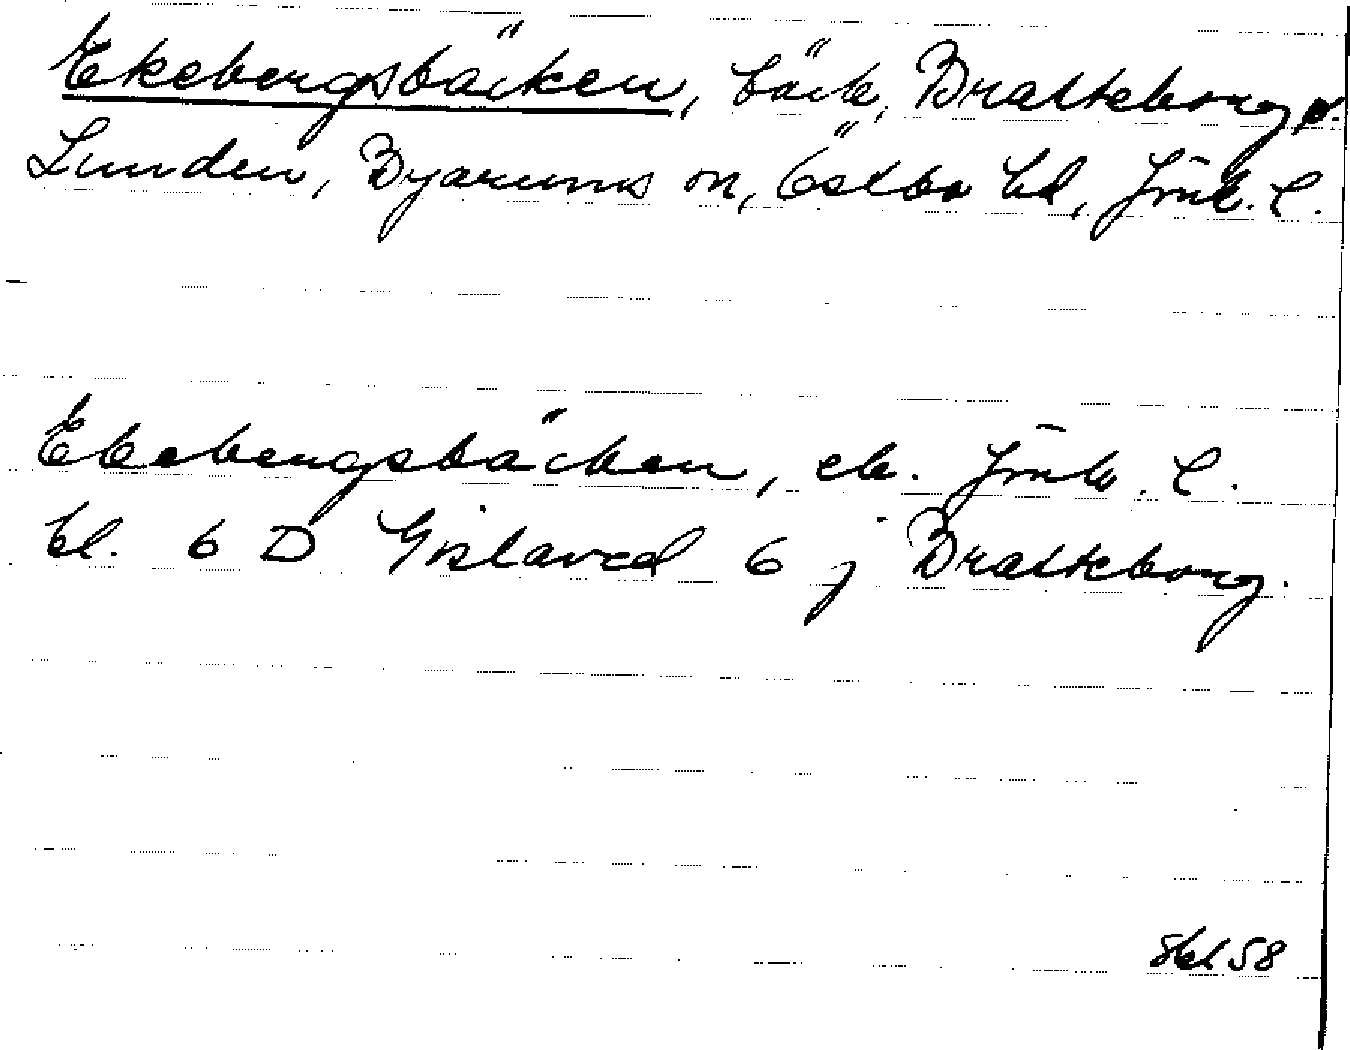 Ekebergsbäcken, bäck, Bratteborg o.
Lunden, Byarums sn, Östbo hd, Jönk. l.
Ekebergsbäcken, ek. Jönk. l.
bl. 6 D Gislaved 6 j Bratteborg.
58